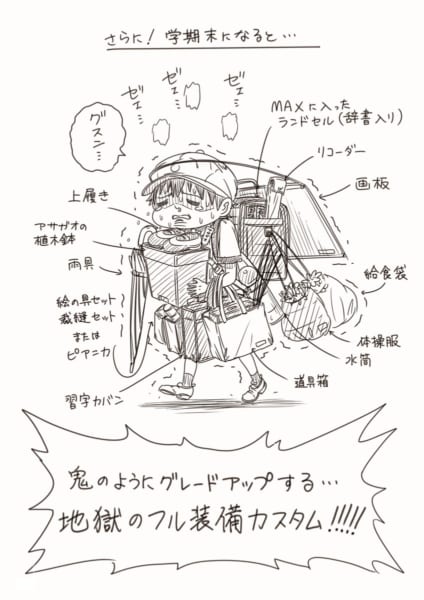 さらに！ 学期末になると…
ゼェ…
ゼェ…
ゼェ…
グスン…
MAXに入った
ランドセル（辞書入り）
リコーダー
画板
上履き
アサガオの
植木鉢
雨具
給食袋
絵の具セット
裁縫セット
または
ピアニカ
体操服
水筒
道具箱
習字カバン
鬼のようにグレードアップする…
地獄のフル装備カスタム!!!!!